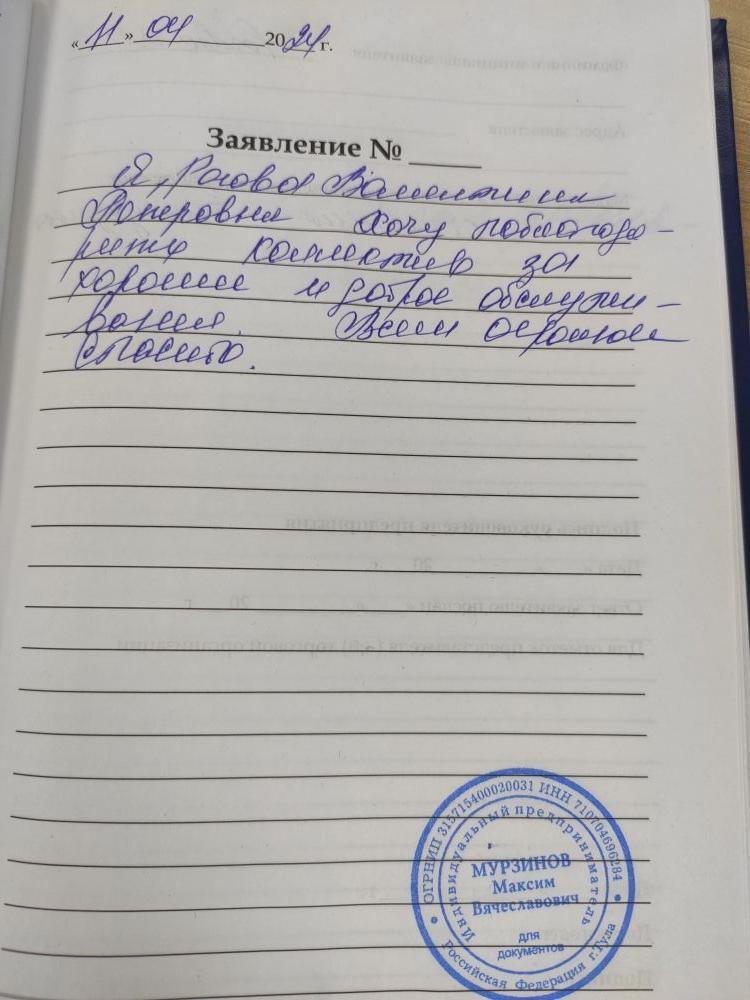 «11» 04 2024 г.
Заявление № ____
Я, Рогова Валентина
хочу поблагода-
рить коллектив за
хорошее и доброе обслужи-
вание. Всем огромное
спасибо.
ОГРНИП 315715400020031 ИНН 710704696284
Индивидуальный предприниматель
МУРЗИНОВ
Максим
Вячеславович
для
документов
Российская Федерация г.Тула